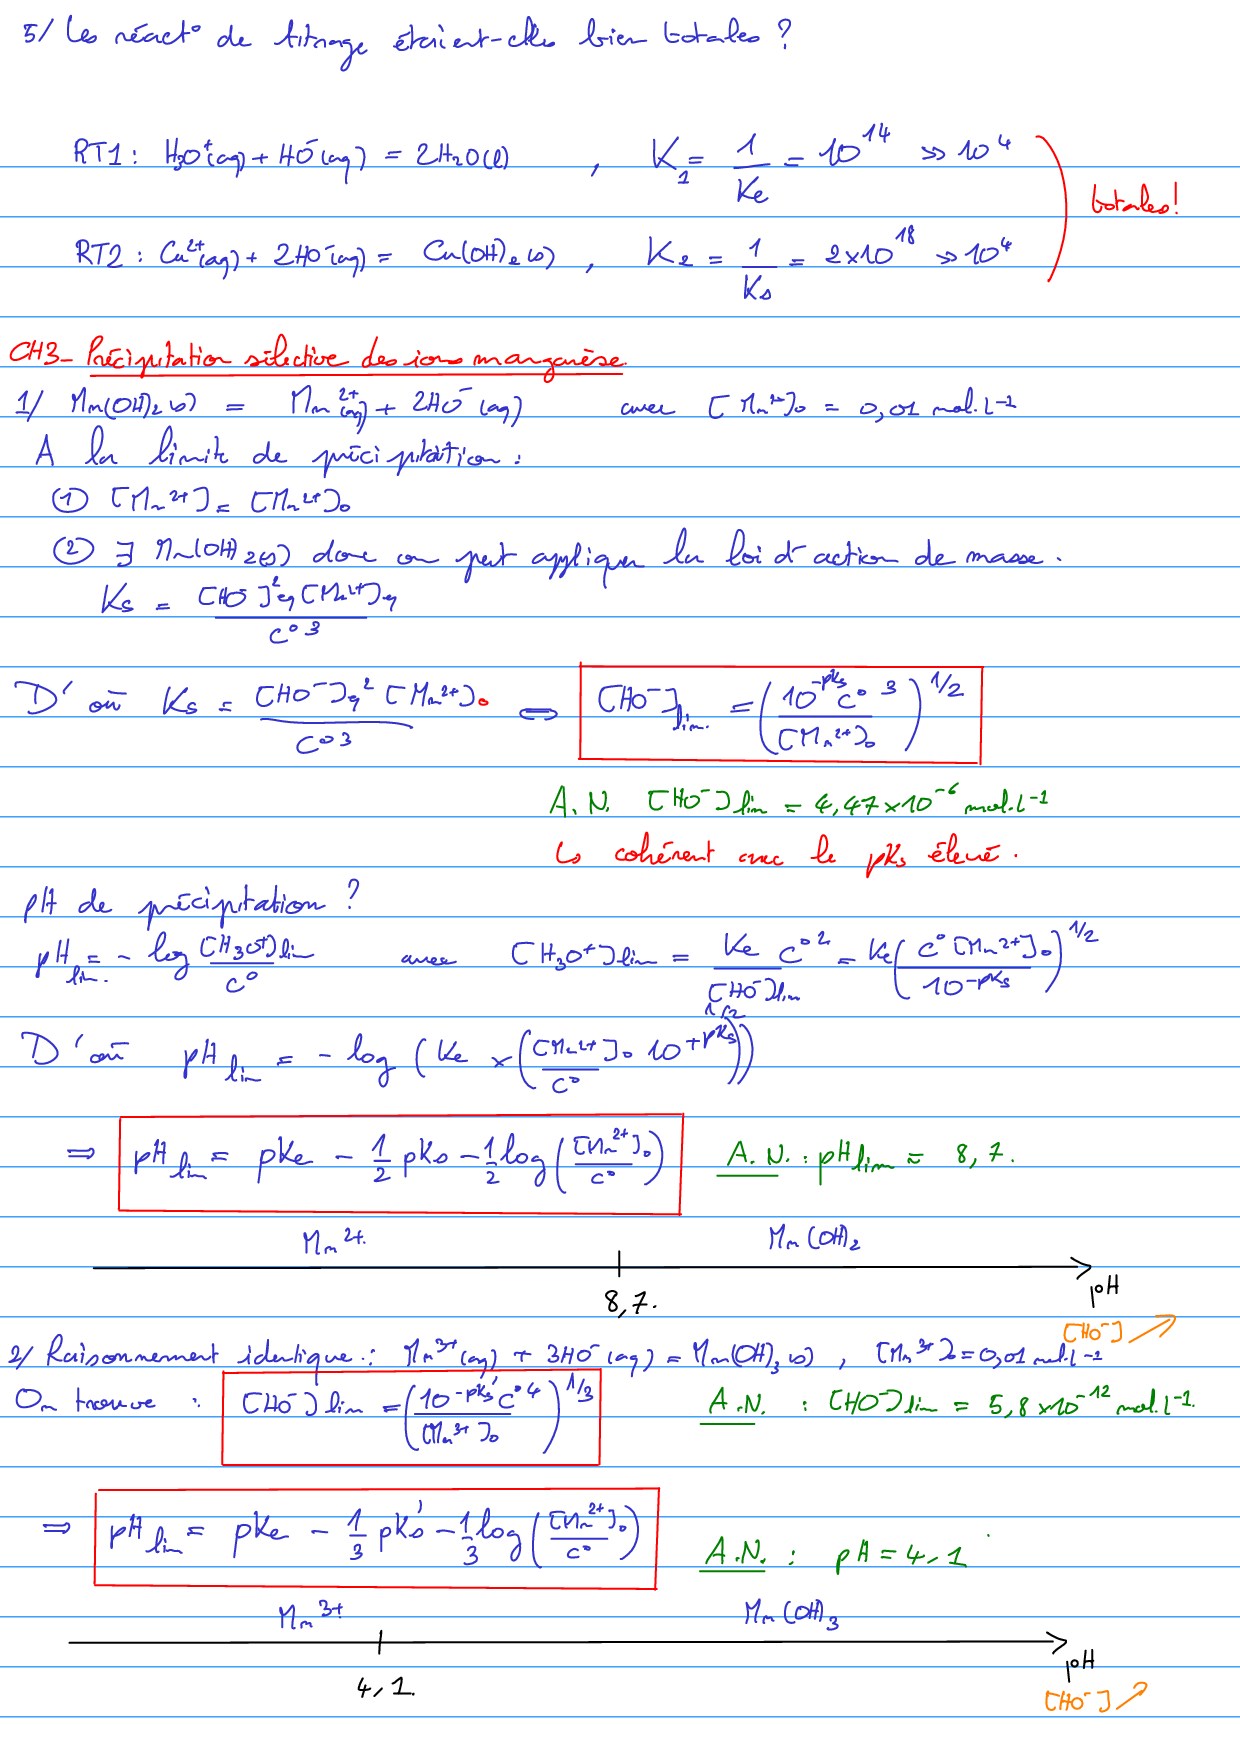 5/ Les réact° de titrage étaient-elles bien totales ?
RT1 : H₃O⁺(aq) + HO⁻(aq) = 2H₂O(l) , K₁ = 1/Ke = 10¹⁴ >> 10⁴
totales !
RT2 : Cu²⁺(aq) + 2HO⁻(aq) = Cu(OH)₂(s) , K₂ = 1/Ks = 2×10¹⁸ >> 10⁴
CH3_ Précipitation sélective des ions manganèse
1/ Mn(OH)₂(s) = Mn²⁺(aq) + 2HO⁻(aq) avec [Mn²⁺]₀ = 0,01 mol.L⁻¹
A la limite de précipitation :
① [Mn²⁺] = [Mn²⁺]₀
② ∃ Mn(OH)₂(s) donc on peut appliquer la loi d'action de masse.
Ks = [HO⁻]²éq [Mn²⁺]éq / C°³
D'où Ks = [HO⁻]éq² [Mn²⁺]₀ / C°³ ⇔ [HO⁻]lim. = (10^-pKs C°³ / [Mn²⁺]₀)^1/2
A.N. [HO⁻]lim = 4,47×10⁻⁶ mol.L⁻¹
↳ cohérent avec le pKs élevé.
pH de précipitation ?
pH lim. = - log [H₃O⁺]lim / C° avec [H₃O⁺]lim = Ke C°² / [HO⁻]lim = Ke (C° [Mn²⁺]₀ / 10^-pKs)^1/2
D'où pH lim = - log (Ke × ([Mn²⁺]₀ 10^+pKs / C°)^1/2)
⇒ pH lim = pKe - 1/2 pKs - 1/2 log ([Mn²⁺]₀ / C°) A.N. : pH lim = 8,7.
Mn²⁺. Mn(OH)₂
8,7. pH
[HO⁻] ↗
2/ Raisonnement identique : Mn³⁺(aq) + 3HO⁻(aq) = Mn(OH)₃(s) , [Mn³⁺]₀ = 0,01 mol.L⁻¹
On trouve : [HO⁻]lim = (10^-pKs' C°⁴ / [Mn³⁺]₀)^1/3 A.N. : [HO⁻]lim = 5,8×10⁻¹² mol.L⁻¹.
⇒ pH lim = pKe - 1/3 pKs' - 1/3 log ([Mn²⁺]₀ / C°) A.N. : pH = 4,1
Mn³⁺ Mn(OH)₃
4,1. pH
[HO⁻] ↗